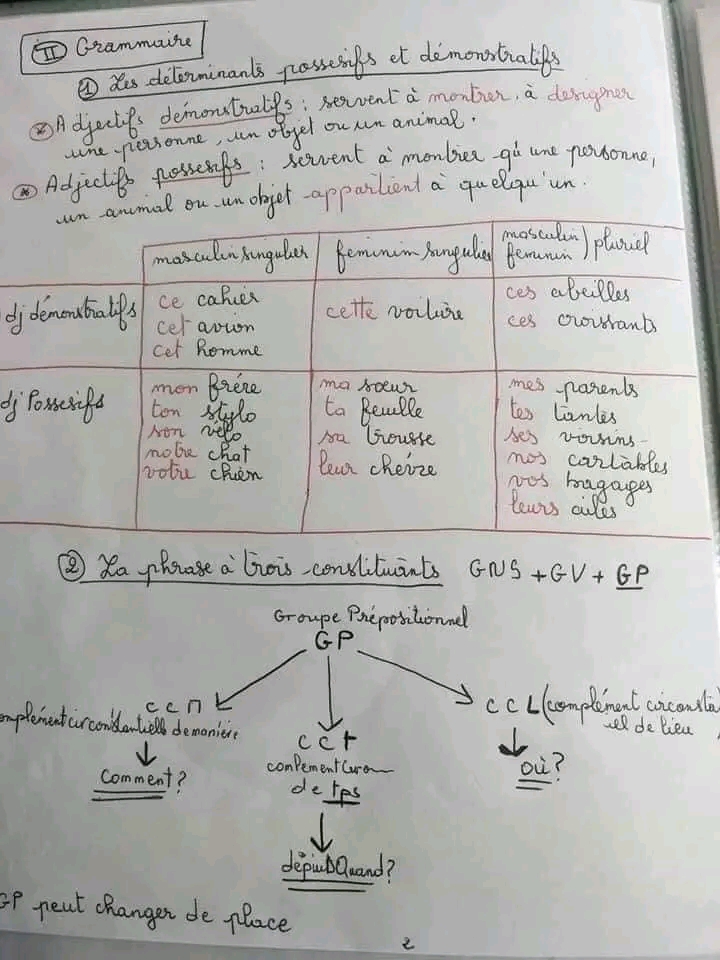 II Grammaire
① Les déterminants possesifs et démonstratifs
* Adjectifs démonstratifs : servent à montrer, à designer
une personne, un objet ou un animal.
* Adjectifs possesifs : servent à montrer qu'une personne,
un animal ou un objet appartient à quelqu'un.
masculin singulier feminim singulier masculin feminin ) pluriel
dj démonstratifs
ce cahier
cet avion
cet homme
cette voiture
ces abeilles
ces croissants
dj Possesifs
mon frére
ton stylo
son vélo
notre chat
votre chien
ma sœur
ta feuille
sa trousse
leur chévre
mes parents
tes tantes
ses voisins
nos cartables
vos bagages
leurs ailes
② La phrase à trois constituants GNS + GV + GP
Groupe Prépositionnel
GP
CCM
omplément circonstantielle de manière
Comment ?
CCt
de tps
Quand ?
CCL (complément circonsta
iel de lieu
Où ?
GP peut changer de place
2